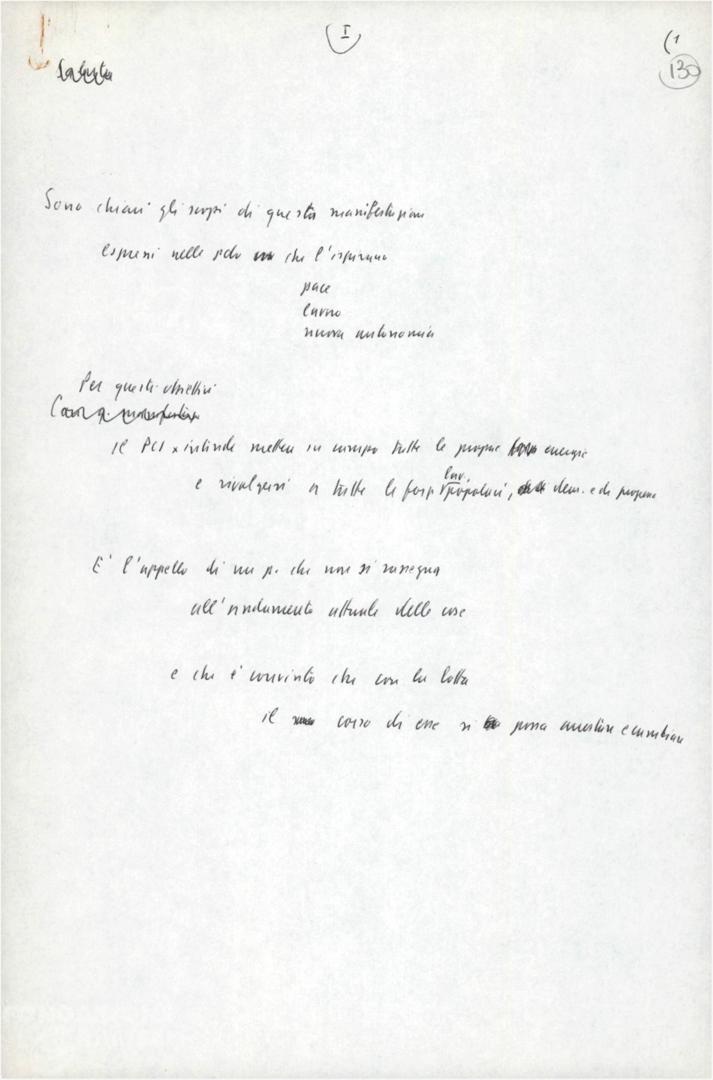 I
(1
130
Saluto
Sono chiari gli scopi di questa manifestazione
espressi nelle che l'ispirano
pace
lavoro
nuova autonomia
Per questi obiettivi
il PCI intende mettere in campo tutte le proprie energie
lav.
e rivolgersi a tutte le forze popolari, dem. e di progresso
E' l'appello di un p. che non si rassegna
all'andamento attuale delle cose
e che è convinto che con la lotta
il corso di esse si possa arrestare e cambiare